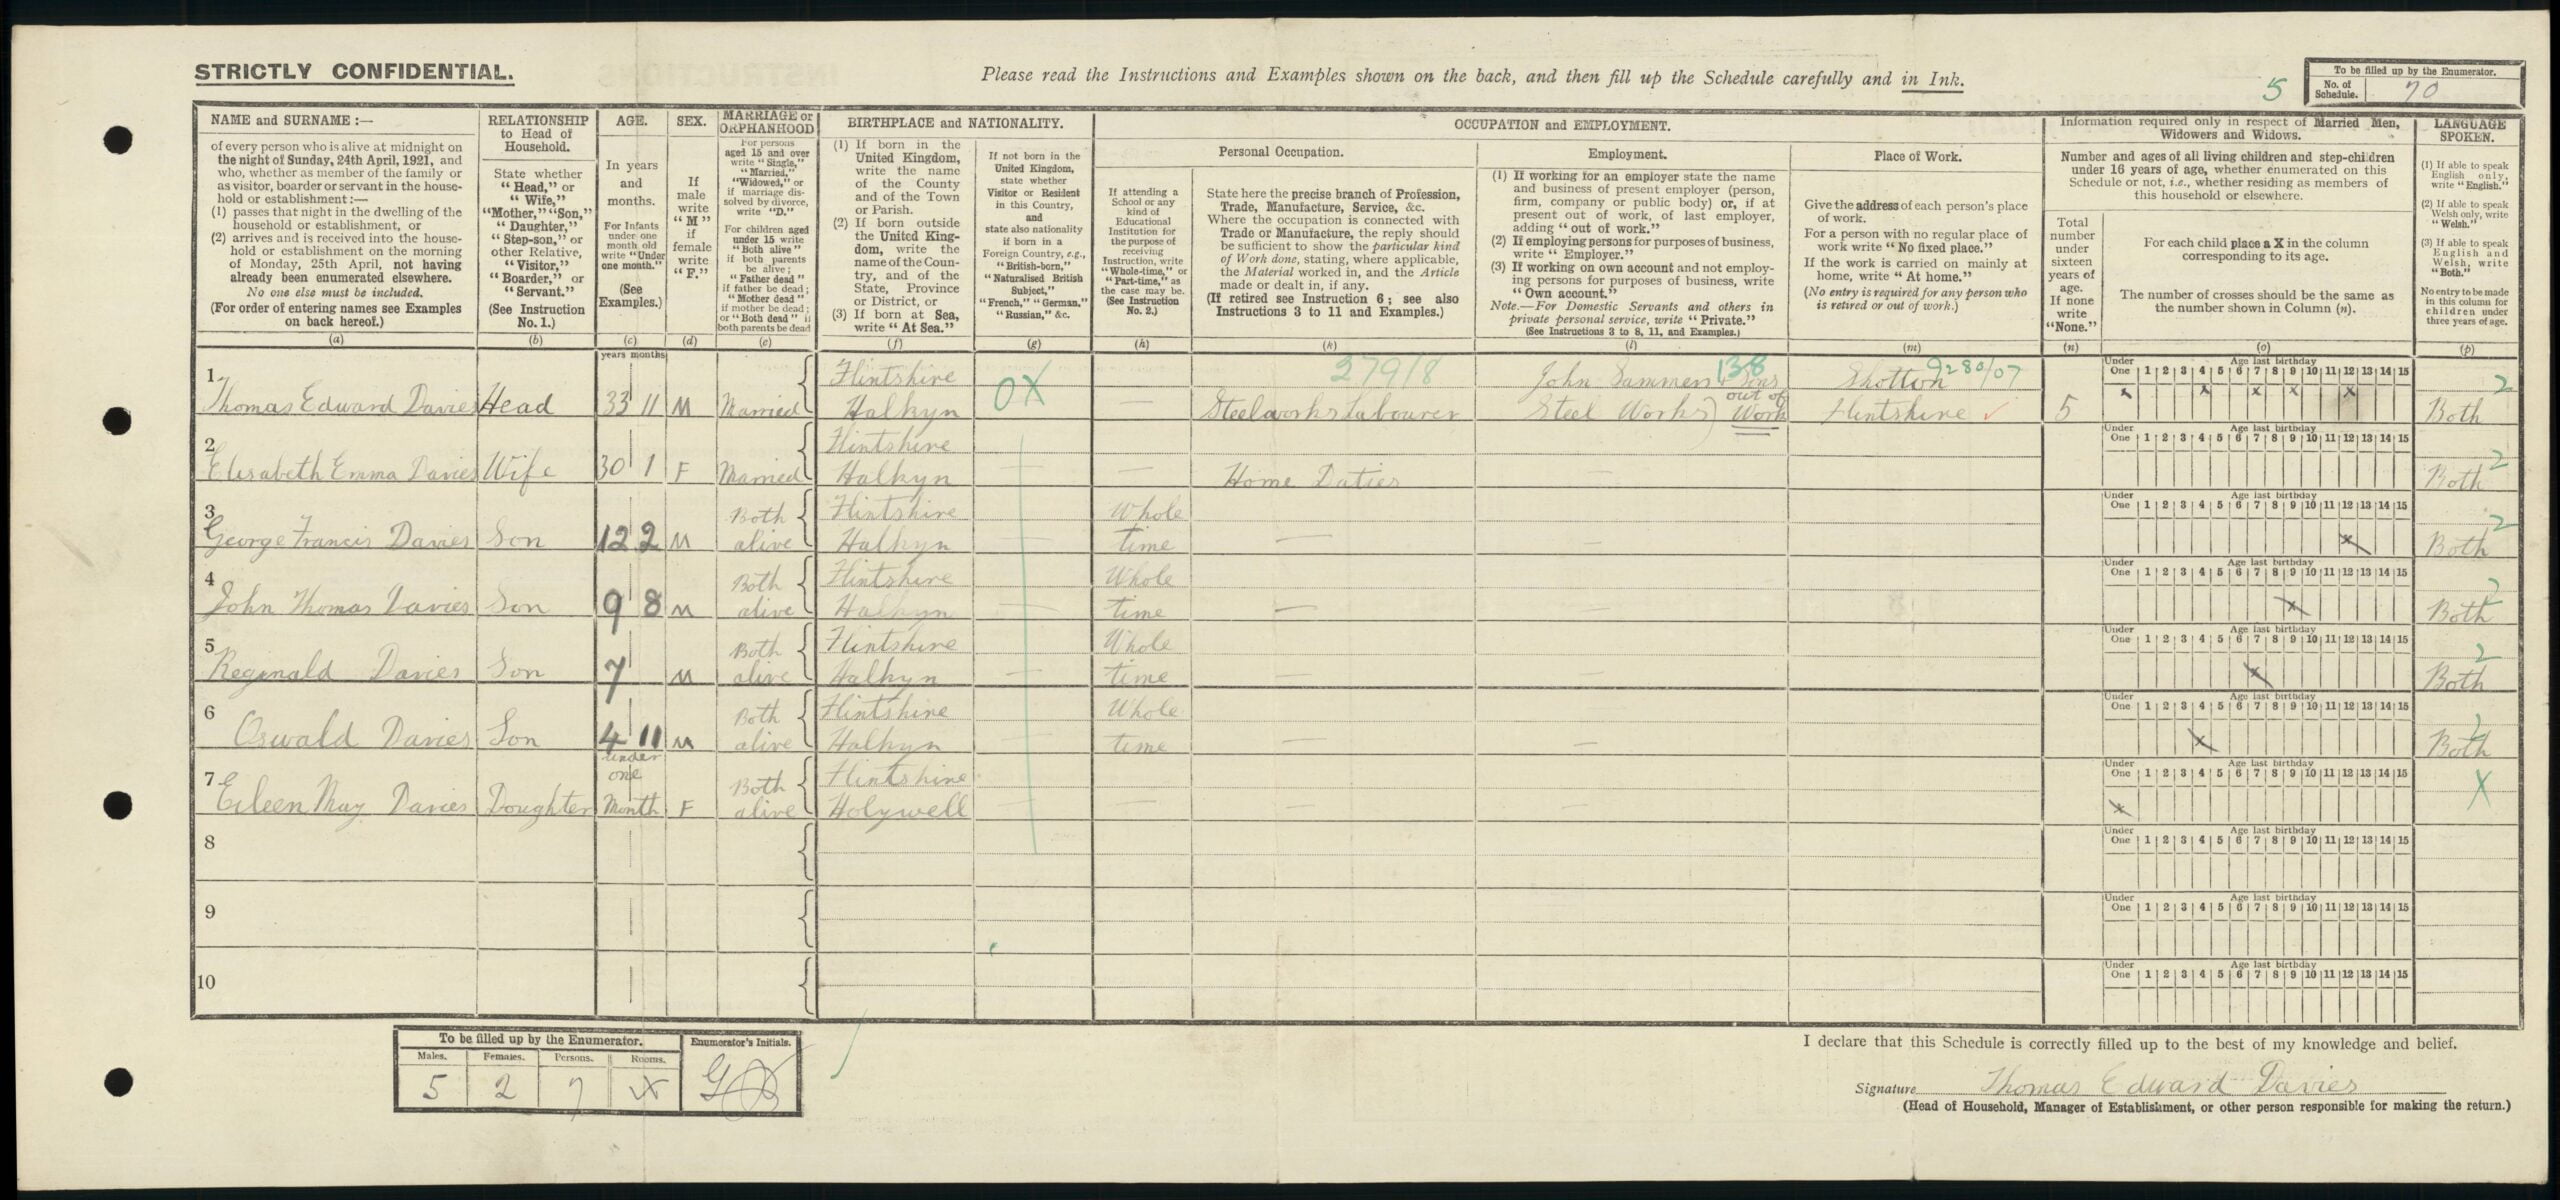 STRICTLY CONFIDENTIAL.
Please read the Instructions and Examples shown on the back, and then fill up the Schedule carefully and in Ink.
5
To be filled up by the Enumerator.
No. of Schedule. 70
NAME and SURNAME :—
of every person who is alive at midnight on
the night of Sunday, 24th April, 1921, and
who, whether as member of the family or
as visitor, boarder or servant in the house-
hold or establishment :—
(1) passes that night in the dwelling of the
household or establishment, or
(2) arrives and is received into the house-
hold or establishment on the morning
of Monday, 25th April, not having
already been enumerated elsewhere.
No one else must be included.
(For order of entering names see Examples
on back hereof.)
(a)
RELATIONSHIP
to Head of
Household.
State whether
"Head," or
"Wife,"
"Mother," "Son,"
"Daughter,"
"Step-son," or
other Relative,
"Visitor,"
"Boarder," or
"Servant."
(See Instruction
No. 1.)
(b)
AGE.
In years
and
months.
For Infants
under one
month old
write "Under
one month."
(See
Examples.)
(c)
years months
SEX.
If
male
write
"M"
if
female
write
"F."
(d)
MARRIAGE or
ORPHANHOOD
For persons
aged 15 and over
write "Single,"
"Married,"
"Widowed," or
if marriage dis-
solved by divorce,
write "D."
For children aged
under 15 write
"Both alive"
if both parents
be alive;
"Father dead"
if father be dead;
"Mother dead"
if mother be dead;
or "Both dead" if
both parents be dead
(e)
BIRTHPLACE and NATIONALITY.
(1) If born in the
United Kingdom,
write the name
of the County
and of the Town
or Parish.
(2) If born outside
the United King-
dom, write the
name of the Coun-
try, and of the
State, Province
or District, or
(3) If born at Sea,
write "At Sea."
(f)
If not born in the
United Kingdom,
state whether
Visitor or Resident
in this Country,
and
state also nationality
if born in a
Foreign Country, e.g.,
"British-born,"
"Naturalised British
Subject,"
"French," "German,"
"Russian," &c.
(g)
OCCUPATION and EMPLOYMENT.
Personal Occupation.
If attending a
School or any
kind of
Educational
Institution for
the purpose of
receiving
Instruction, write
"Whole-time," or
"Part-time," as
the case may be.
(See Instruction
No. 2.)
(h)
State here the precise branch of Profession,
Trade, Manufacture, Service, &c.
Where the occupation is connected with
Trade or Manufacture, the reply should
be sufficient to show the particular kind
of Work done, stating, where applicable,
the Material worked in, and the Article
made or dealt in, if any.
(If retired see Instruction 6 ; see also
Instructions 3 to 11 and Examples.)
(k)
Employment.
(1) If working for an employer state the name
and business of present employer (person,
firm, company or public body) or, if at
present out of work, of last employer,
adding "out of work."
(2) If employing persons for purposes of business,
write "Employer."
(3) If working on own account and not employ-
ing persons for purposes of business, write
"Own account."
Note.—For Domestic Servants and others in
private personal service, write "Private."
(See Instructions 3 to 8, 11, and Examples.)
(l)
Place of Work.
Give the address of each person's place
of work.
For a person with no regular place of
work write "No fixed place."
If the work is carried on mainly at
home, write "At home."
(No entry is required for any person who
is retired or out of work.)
(m)
Information required only in respect of Married Men,
Widowers and Widows.
Number and ages of all living children and step-children
under 16 years of age, whether enumerated on this
Schedule or not, i.e., whether residing as members of
this household or elsewhere.
Total
number
under
sixteen
years of
age.
If none
write
"None."
(n)
For each child place a X in the column
corresponding to its age.
The number of crosses should be the same as
the number shown in Column (n).
(o)
LANGUAGE
SPOKEN.
(1) If able to speak
English only,
write "English."
(2) If able to speak
Welsh only, write
"Welsh."
(3) If able to speak
English and
Welsh, write
"Both."
No entry to be made
in this column for
children under
three years of age.
(p)
1 Flintshire OX 279/8 John Summers & Sons 138 Shotton 9280/07 Under One 1 2 3 4 5 6 7 8 9 10 11 12 13 14 15 Age last birthday 2
Thomas Edward Davies Head 33 11 M Married Halkyn — Steelworks Labourer Steel Works) out of Work Flintshire ✓ 5 x x x x x Both
2 Flintshire Under One 1 2 3 4 5 6 7 8 9 10 11 12 13 14 15 Age last birthday 2
Elisabeth Emma Davies Wife 30 1 F Married Halkyn — Home Duties — Both
3 Both Flintshire Whole Under One 1 2 3 4 5 6 7 8 9 10 11 12 13 14 15 Age last birthday 2
George Francis Davies Son 12 2 M alive Halkyn time — — x Both
4 Both Flintshire Whole Under One 1 2 3 4 5 6 7 8 9 10 11 12 13 14 15 Age last birthday 2
John Thomas Davies Son 9 8 M alive Halkyn — time — — x Both
5 Both Flintshire Whole Under One 1 2 3 4 5 6 7 8 9 10 11 12 13 14 15 Age last birthday 2
Reginald Davies Son 7 M alive Halkyn — time — — x Both
6 Both Flintshire Whole Under One 1 2 3 4 5 6 7 8 9 10 11 12 13 14 15 Age last birthday 2
Oswald Davies Son 4 11 M alive Halkyn — time — — x Both
7 under one Both Flintshire Under One 1 2 3 4 5 6 7 8 9 10 11 12 13 14 15 Age last birthday X
Eileen May Davies Doughter Month F alive Holywell — — — — x
8 Under One 1 2 3 4 5 6 7 8 9 10 11 12 13 14 15 Age last birthday
9 Under One 1 2 3 4 5 6 7 8 9 10 11 12 13 14 15 Age last birthday
10 Under One 1 2 3 4 5 6 7 8 9 10 11 12 13 14 15 Age last birthday
To be filled up by the Enumerator.
Males. Females. Persons. Rooms.
5 2 7
Enumerator's Initials.
I declare that this Schedule is correctly filled up to the best of my knowledge and belief.
Signature Thomas Edward Davies
(Head of Household, Manager of Establishment, or other person responsible for making the return.)